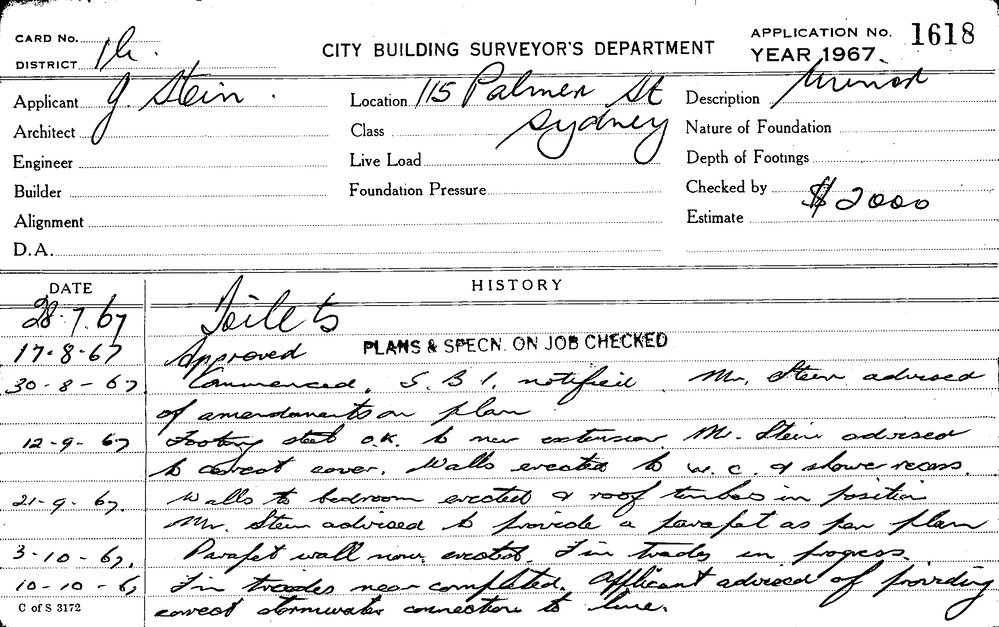 CARD No. 
DISTRICT
CITY BUILDING SURVEYOR'S DEPARTMENT
APPLICATION No. 1618
YEAR 1967.
Applicant J. Stein.
Location 115 Palmer St
Sydney
Description Minor
Architect
Class
Nature of Foundation
Engineer
Live Load
Depth of Footings
Builder
Foundation Pressure
Checked by
Alignment
Estimate $2000
D.A.
DATE HISTORY
28.7.67 Toilets
17-8-67 Approved PLANS & SPECN. ON JOB CHECKED
30-8-67. Commenced. S.B.I. notified Mr. Stein advised
of amendments on plan
12-9-67 Footing steel O.K. to new extension. Mr. Stein advised
to correct cover. Walls erected to w.c. & shower recess.
21-9-67. Walls to bedroom erected & roof timbers in position
Mr. Stein advised to provide a parapet as per plan
3-10-67. Parapet wall now erected. Fin trades in progress.
10-10-6 Fin trades near completed. Applicant advised of providing
correct stormwater connection to line.
C of S 3172